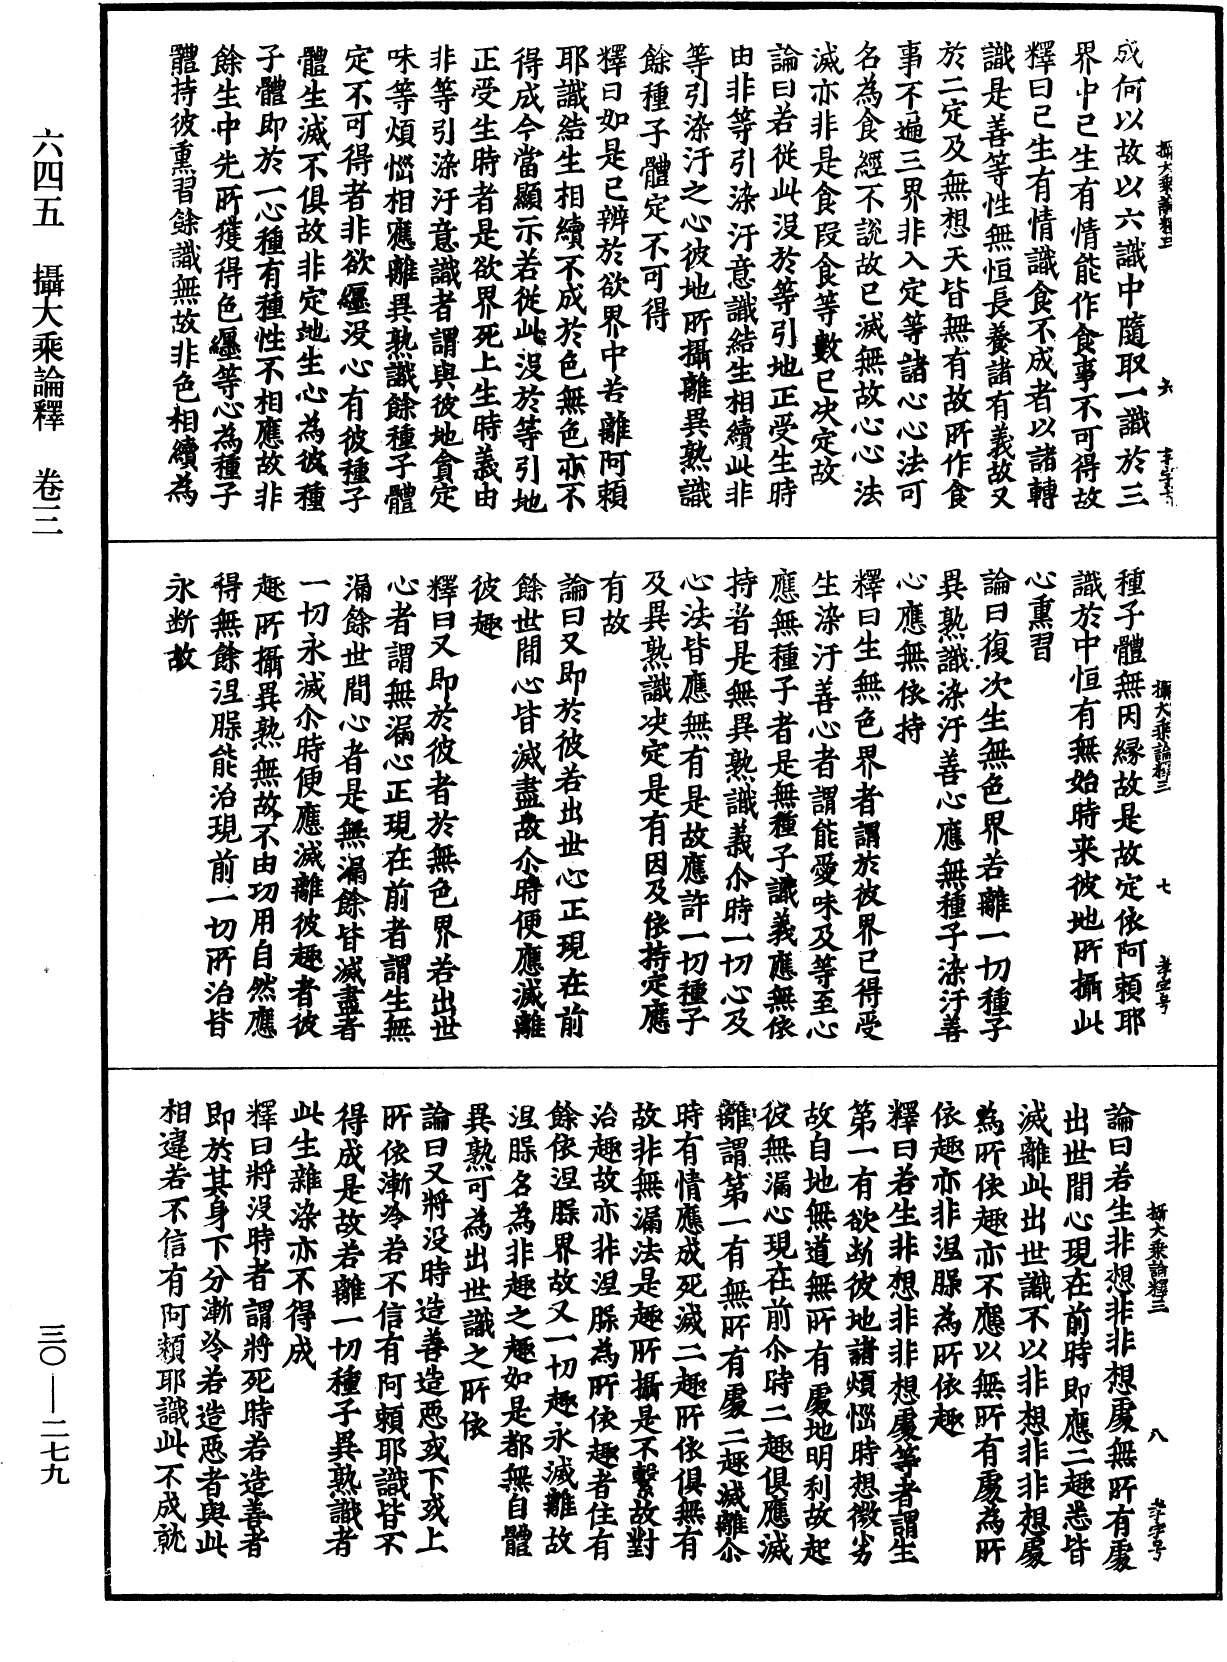 成何以故以六識中隨取一識於三
界中已生有情能作食事不可得故
釋曰已生有情識食不成者以諸轉
識是善等性無恒長養諸有義故又
於二定及無想天皆無有故所作食
事不遍三界非入定等諸心心法可
名為食經不說故已滅無故心心法
滅亦非是食段食等數已決定故
論曰若從此沒於等引地正受生時
由非等引染汙意識結生相續此非
等引染汙之心彼地所攝離異熟識
餘種子體定不可得
釋曰如是已辨於欲界中若離阿賴
耶識結生相續不成於色無色亦不
得成今當顯示若從此沒於等引地
正受生時者是欲界死上生時義由
非等引染汙意識者謂與彼地貪定
味等煩惱相應離異熟識餘種子體
定不可得者非欲纏沒心有彼種子
體生滅不俱故非定地生心為彼種
子體即於一心種有種性不相應故非
餘生中先所獲得色纏等心為種子
體持彼熏習餘識無故非色相續為
種子體無因緣故是故定依阿賴耶
識於中恒有無始時来彼地所攝此
心熏習
論曰復次生無色界若離一切種子
異熟識染汙善心應無種子染汙善
心應無依持
釋曰生無色界者謂於彼界已得受
生染汙善心者謂能愛味及等至心
應無種子者是無種子識義應無依
持者是無異熟識義尒時一切心及
心法皆應無有是故應許一切種子
及異熟識決定是有因及依持定應
有故
論曰又即於彼若出世心正現在前
餘世間心皆滅盡故尒時便應滅離
彼趣
釋曰又即於彼者於無色界若出世
心者謂無漏心正現在前者謂生無
漏餘世間心者是無漏餘皆滅盡者
一切永滅尒時便應滅離彼趣者彼
趣所攝異熟無故不由功用自然應
得無餘涅槃能治現前一切所治皆
永断故
論曰若生非想非非想處無所有處
出世間心現在前時即應二趣悉皆
滅離此出世識不以非想非非想處
為所依趣亦不應以無所有處為所
依趣亦非涅槃為所依趣
釋曰若生非想非非想處等者謂生
第一有欲断彼地諸煩惱時想微劣
故自地無道無所有處地明利故起
彼無漏心現在前尒時二趣俱應滅
離謂第一有無所有處二趣滅離尒
時有情應成死滅二趣所依俱無有
故非無漏法是趣所攝是不繫故對
治趣故亦非涅槃為所依趣者住有
餘依涅槃界故又一切趣永滅離故
涅槃名為非趣之趣如是都無自體
異熟可為出世識之所依
論曰又將沒時造善造惡或下或上
所依漸冷若不信有阿賴耶識皆不
得成是故若離一切種子異熟識者
此生雜染亦不得成
釋曰將沒時者謂將死時若造善者
即於其身下分漸冷若造惡者與此
相違若不信有阿賴耶識此不成就
攝大乘論釋三 七
攝大乘論釋三 八
六四五 攝大乘論釋 卷三
三〇—二七九